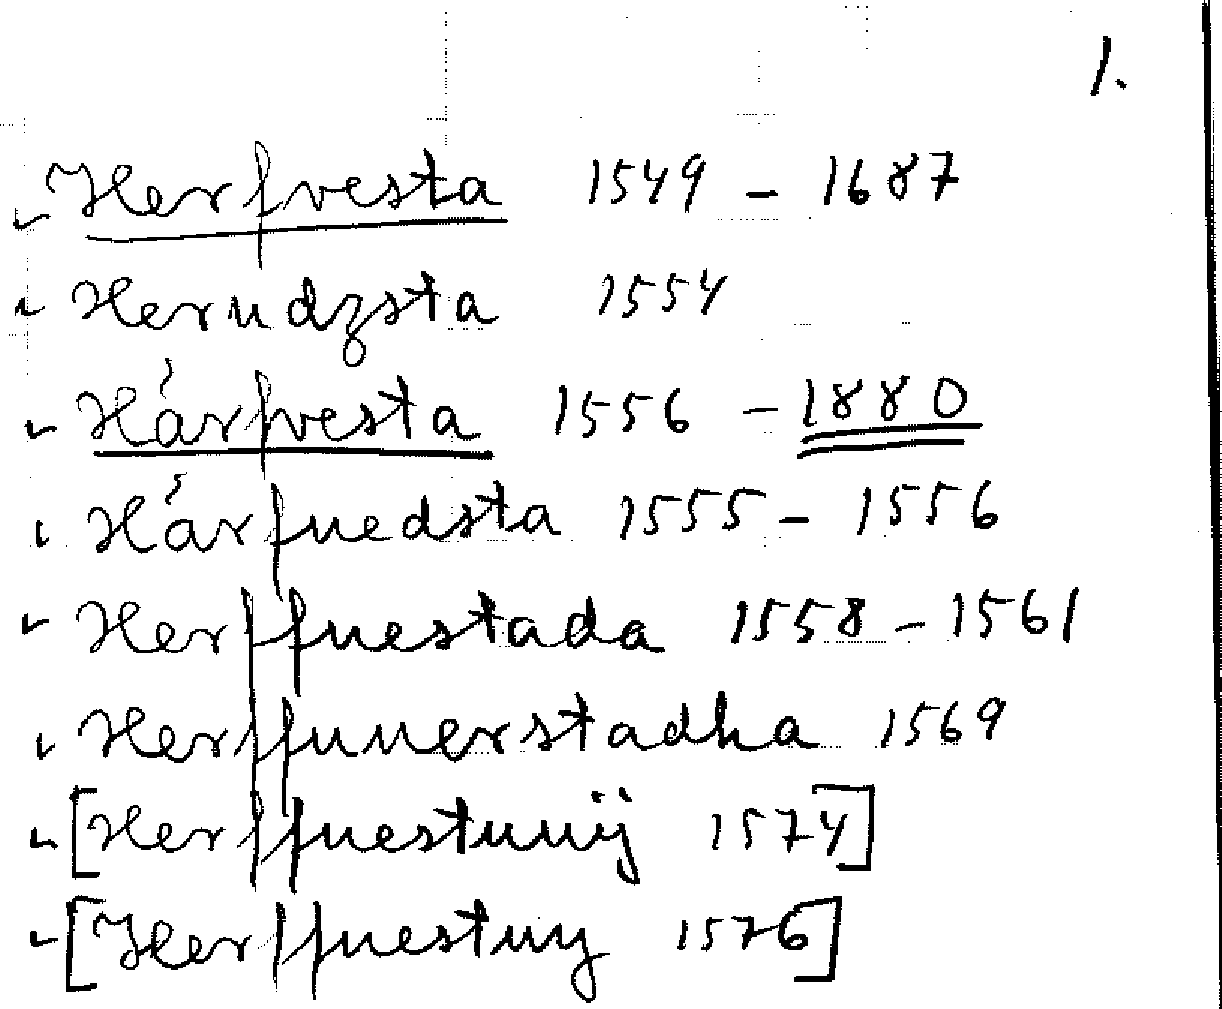 1.
Herfvesta 1549 – 1687
Herudzsta 1554
Hárfvesta 1556 – 1880
Hárfuedsta 1555 – 1556
Herffuestada 1558 – 1561
Herffuuerstadha 1569
[Herffuestuuij 1574]
[Herffuestuy 1576]